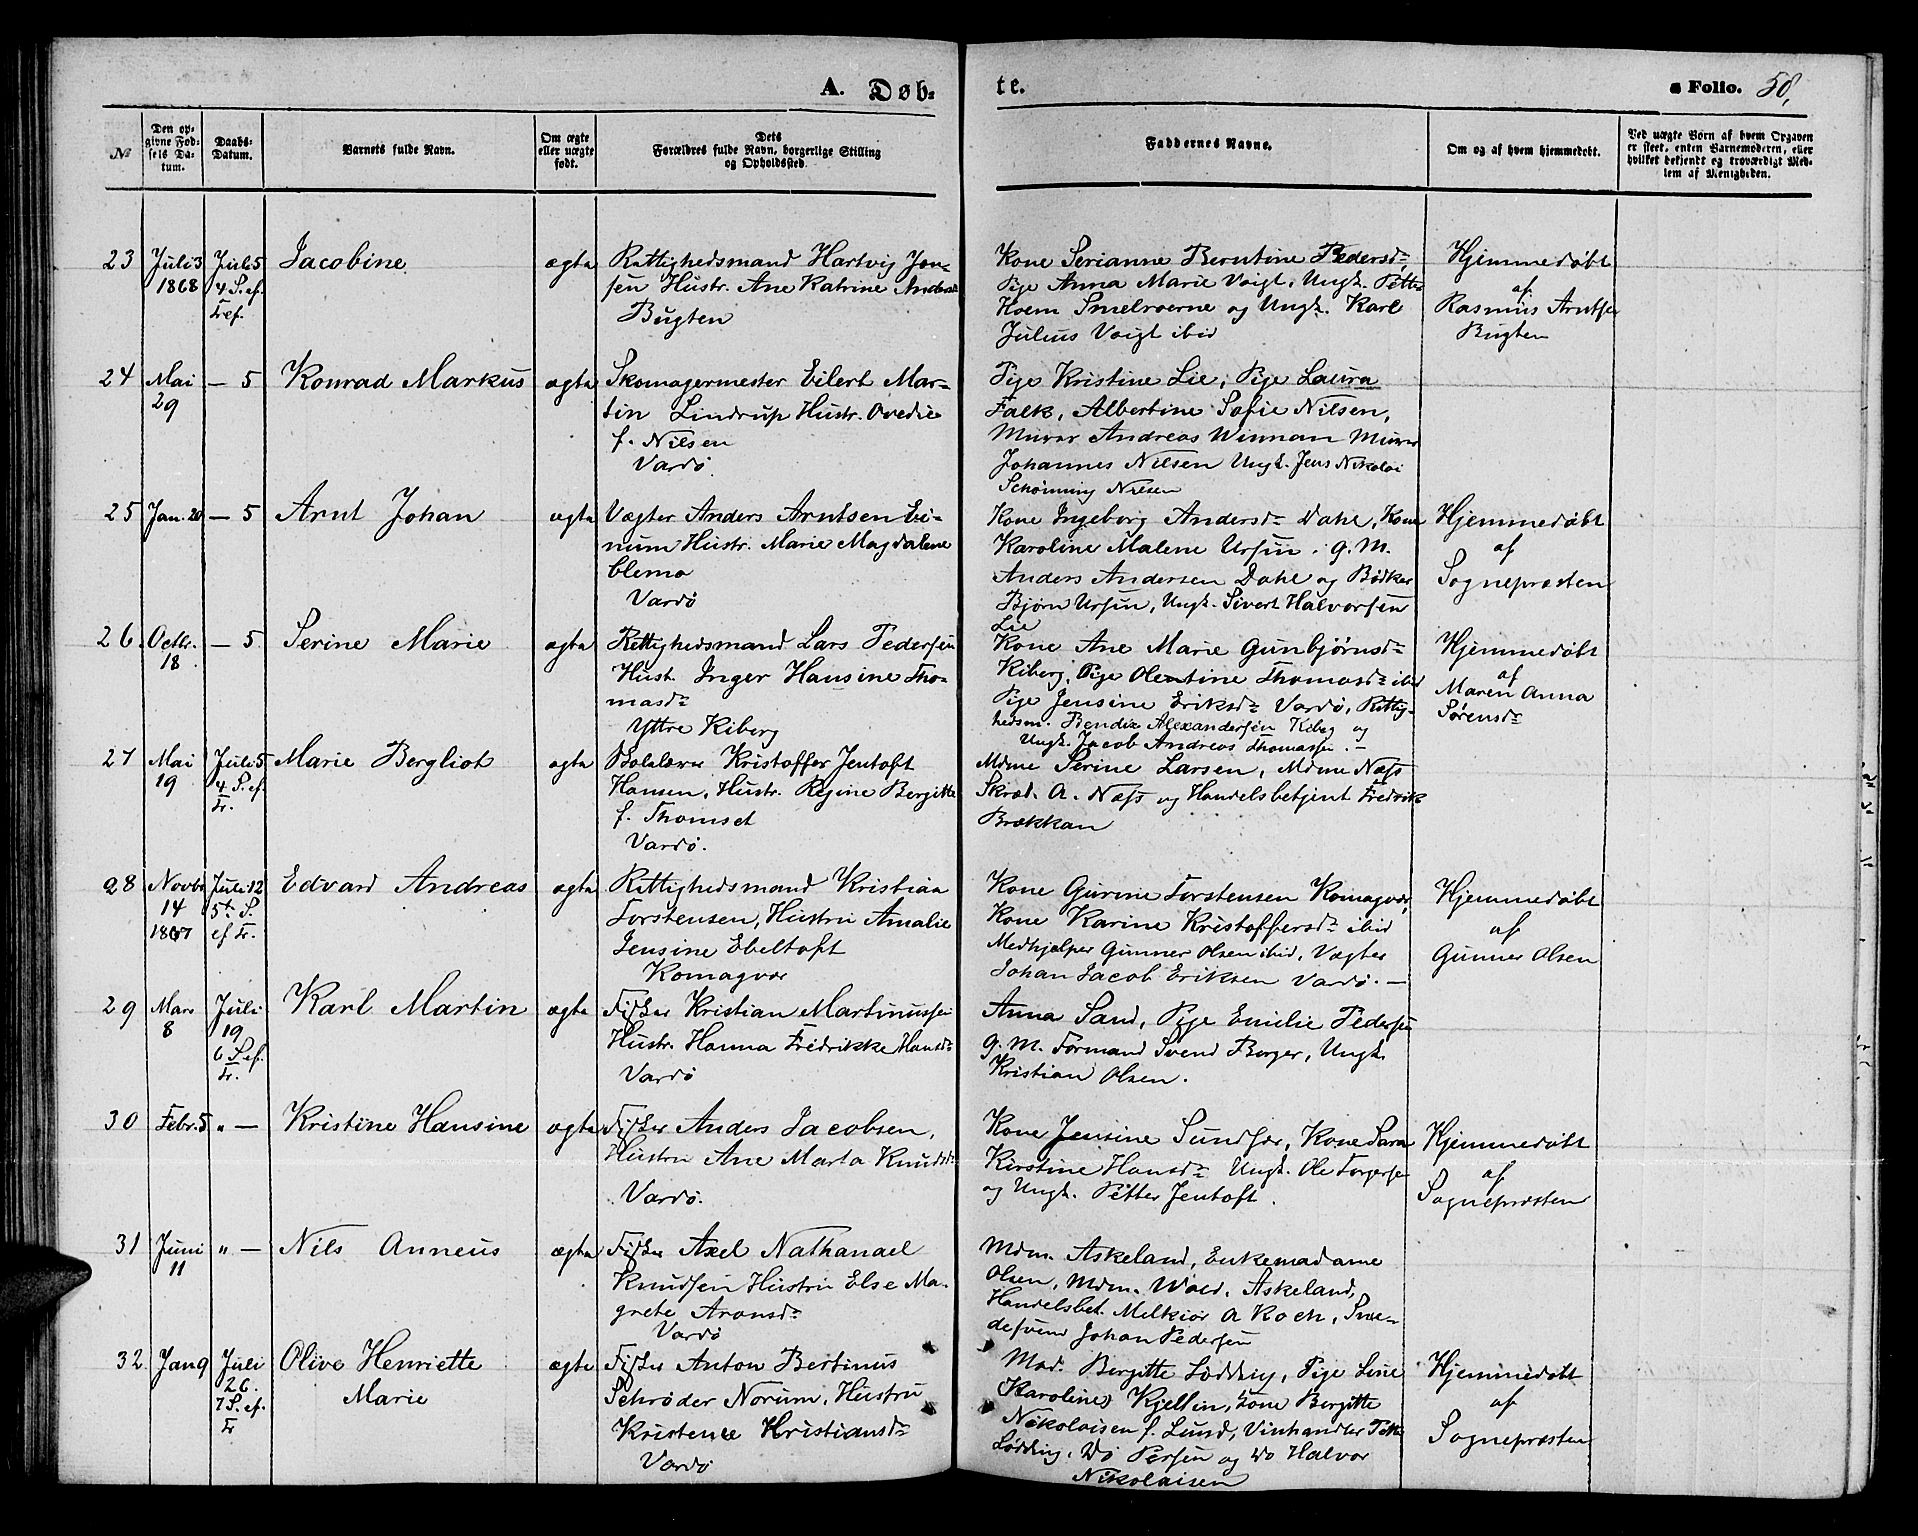 A. Døb-
te.
Folio. 58,
№
Den op-
givne Fød-
sels Da-
tum.
Daabs-
Datum.
Barnets fulde Navn.
Om ægte
eller uægte
født.
Dets
Forældres fulde Navn, borgerlige Stilling
og Opholdssted.
Faddernes Navne.
Om og af hvem hjemmedøbt.
Ved uægte Børn af hvem Opgaven
er skeet, enten Barnemoderen, eller
hvilket bekjendt og troværdigt Med-
lem af Menigheden.
23
Juli 3
1868
Juli 5
4 S. ef.
Tref.
Jacobine
ægta
Rettighedsmand Hartvig Jon-
sen Hustr. Ane Katrine Andersd
Bugten
Kone Serianne Berntine Pedersd
Pige Anna Marie Voigt, Ungk. Petter
Hoem Smelroerne og Ungk. Karl
Julius Voigt ibid
Hjemmedøbt
af
Rasmus Arntsen
Bugten
24
Mai
29
— 5
Konrad Markus
ægta
Skomagermester Eilert Mar-
tin Lindrup Hustr. Ovedie
f. Nilsen
Vardø
Pige Kristine Lie, Pige Laura
Falk, Albertine Sofie Nilsen,
Murer Andreas Winman Murer
Johannes Nilsen Ungk. Jens Nikolai
Schønning Nilsen
25
Jan. 20
— 5
Arnt Johan
ægta
Vægter Anders Arntsen Ei-
num Hustr. Marie Magdalene
Clemo
Vardø
Kone Ingeborg Andersd Dahl, Kone
Karoline Malene Ursin. G. M.
Anders Andersen Dahl og Bødker
Bjørn Ursin, Ungk. Sivert Halvorsen
Lie
Hjemmedøbt
af
Sognepræsten
26
Octbr.
18
— 5
Serine Marie
ægta
Rettighedsmand Lars Pedersen
Hust. Inger Hansine Tho-
masd
Yttre Kiberg
Kone Ane Marie Gunbjørnsd
Kiberg, Pige Olentine Thomasd ibid
Pige Jensine Eriksd Vardø, Rettig-
hedsm. Bendix Alexandersen Kiberg og
Ungk. Jacob Andreas Thomassen. —
Hjemmedøbt
af
Maren Anna
Sørensd
27
Mai
19
Juli 5
4 S. ef.
Tr.
Marie Bergliot
ægta
Kristoffer Jentoft
Hansen, Hustr. Regine Bergitte
f. Thomset
Vardø.
Mdme Serine Larsen, Mdme Næss
Skræd. A. Næss og Handelsbetjent Fredrik
Brækkan
28
Novbr
14
1867
Juli 12
5t. S.
ef Tr.
Edvard Andreas
ægta
Rettighedsmand Kristian
Torstensen, Hustru Amalie
Jensine Ebeltoft
Komagvær
Kone Gurine Torstensen Komagvær,
Kone Karine Kristoffersd ibid
Medhjelper Gunner Olsen ibid, Vægter
Johan Jacob Eriksen Vardø. —
Hjemmedøbt
af
Gunner Olsen
29
Mars
8
Juli
19
6 S. ef.
Tr.
Karl Martin
ægta
Fisker Kristian Martinussen
Hustr. Hanna Fredrikke Hansd
Vardø
Anna Sand, Pige Emilie Pedersen
G. M. Formand Svend Borger, Ungk.
Kristian Olsen.
30
Febr. 5
" —
Kristine Hansine
ægta
Fisker Anders Jacobsen,
Hustru Ane Marta Knudsd
Vardø.
Kone Jensine Sundfær, Kone Sara
Kirstine Hansd Ungk. Ole Torgersen
og Ungk. Petter Jentoft.
Hjemmedøbt
af
Sognepræsten
31
Juni
11
" —
Nils Anneus
ægta
Fisker Axel Nathanael
Knudsen Hustru Else Ma-
grete Aronsd
Vardø
Mdm. Askeland, Enkemadame
Olsen, Mdm. Wold, Askeland,
Handelsbet. Melkior A Koch, Sme-
desvend Johan Pedersen
32
Jan 9
Juli
26.
7 S. ef.
Tr
Olive Henriette
Marie
ægta
Fisker Anton Bertinus
Schrøder Norum, Hustru
Kristence Kristiansd
Vardø
Mad. Bergitte Lødding, Pige Line
(Karoline) Kjellin, Kone Bergitte
Nikolaisen f. Lund, Vinhandler Pett.
Lødding, Do Persen og Do Halvor
Nikolaisen
Hjemmedøbt
af
Sognepræsten